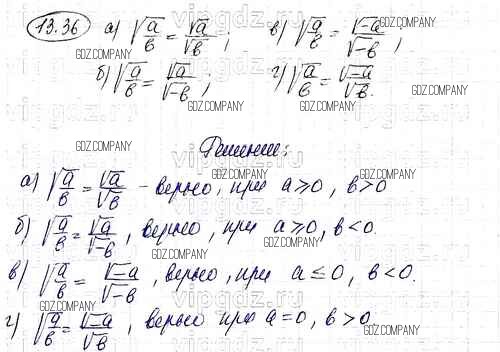 13.36 а) √a/b = √a/√b; в) √a/b = √-a/√-b;
б) √a/b = √a/√-b; г) √a/b = √-a/√b.
Решение:
а) √a/b = √a/√b - верно, при a≥0, b>0
б) √a/b = √a/√-b, верно, при a≥0, b<0.
в) √a/b = √-a/√-b, верно, при a≤0, b<0.
г) √a/b = √-a/√b, верно при a=0, b>0.